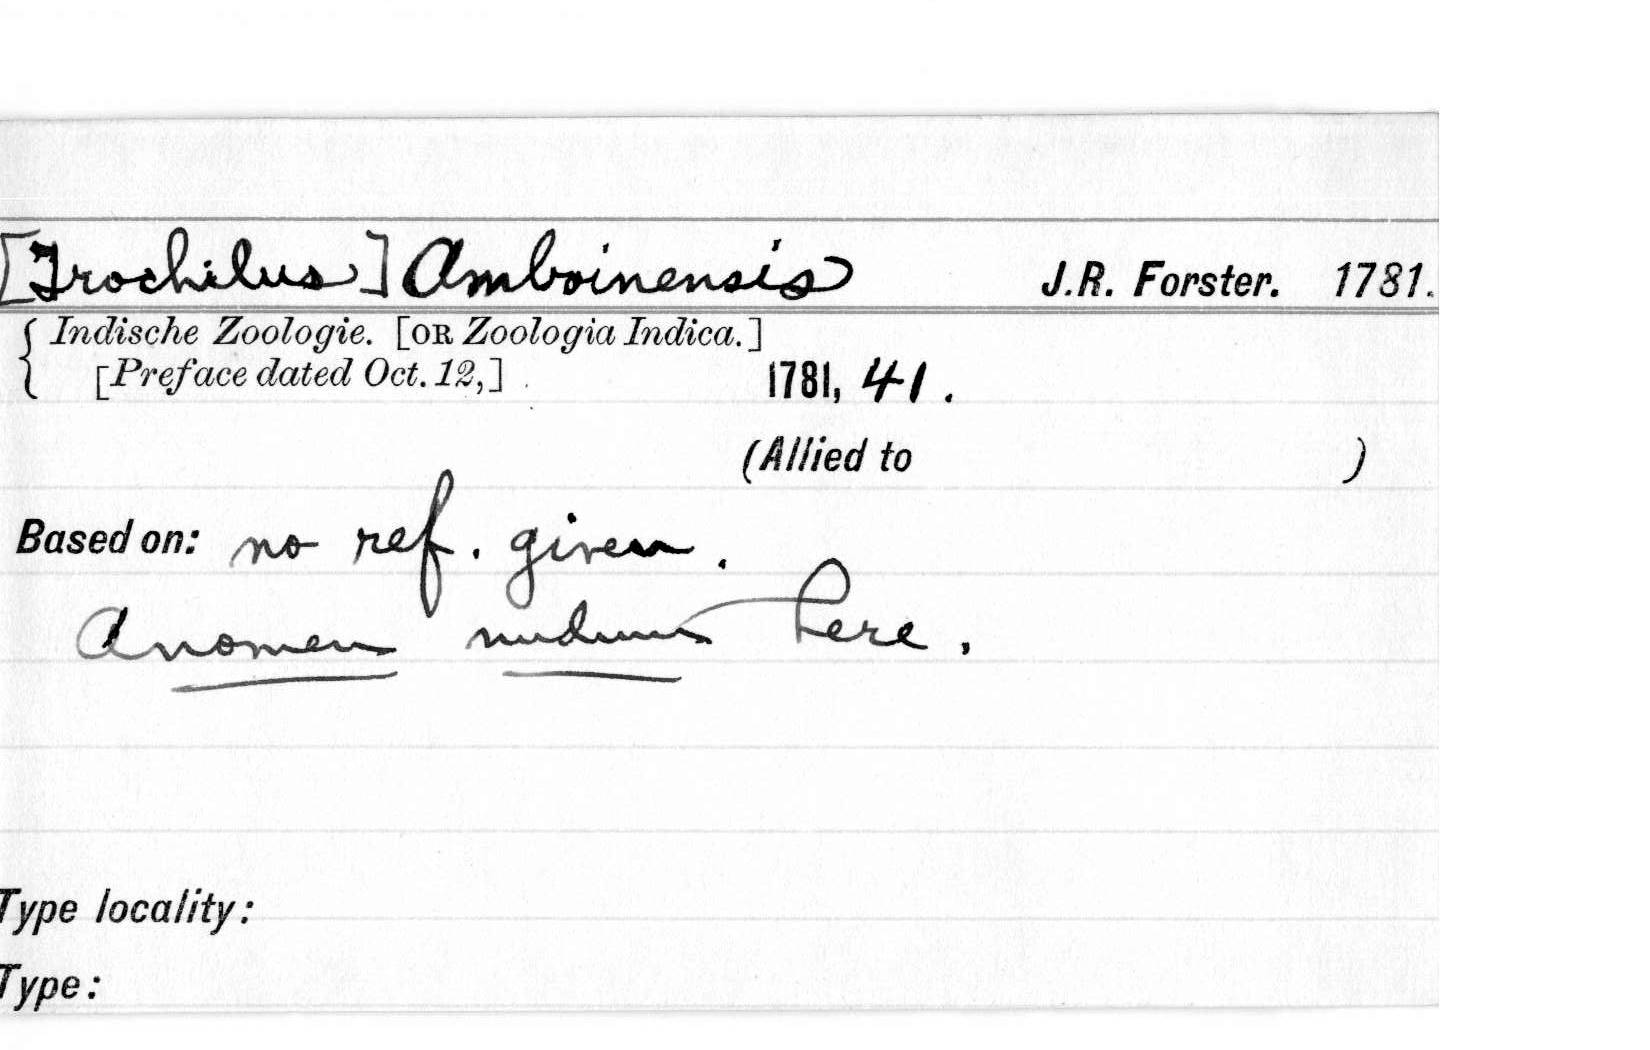 [Trochilus] Amboinensis J.R. Forster. 1781.
{ Indische Zoologie. [OR Zoologia Indica.]
[Preface dated Oct. 12,] 1781, 41.
(Allied to )
Based on: no ref. given.
A nomen nudum here.
Type locality:
Type: